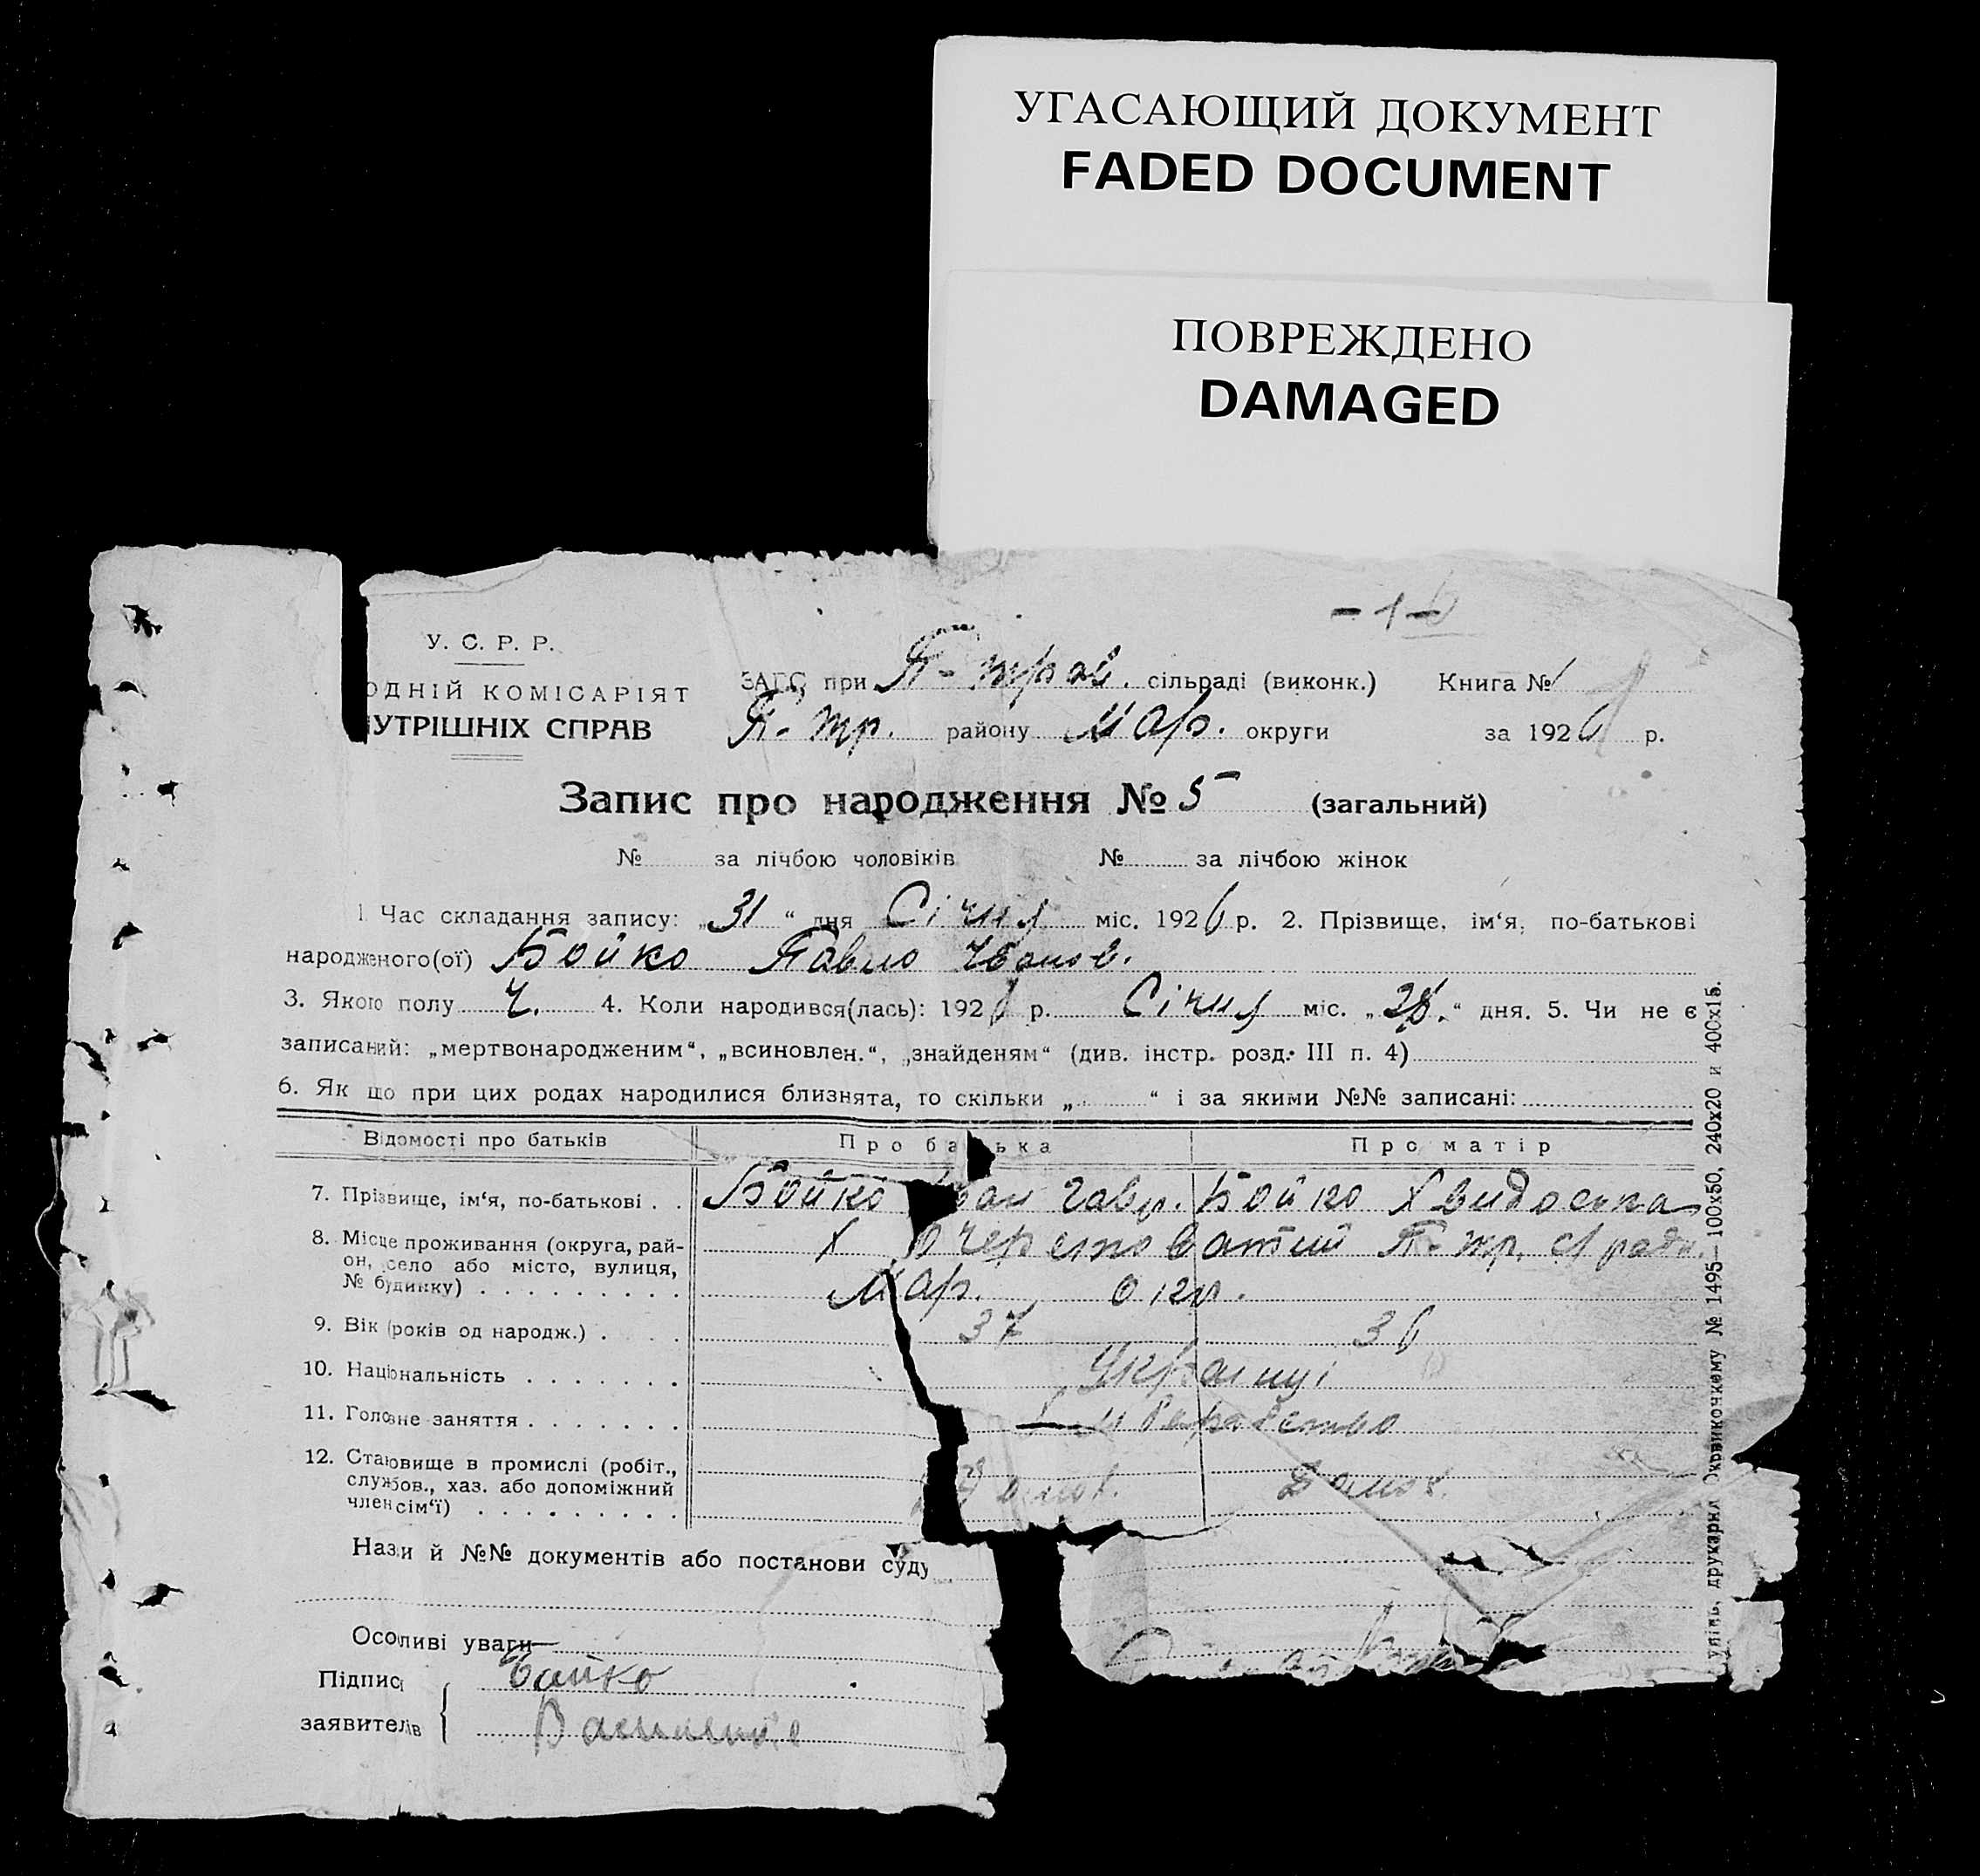 УГАСАЮЩИЙ ДОКУМЕНТ
FADED DOCUMENT
ПОВРЕЖДЕНО
DAMAGED
- 1 -
У. С. Р. Р.
ОДНІЙ КОМІСАРІЯТ
НУТРІШНІХ СПРАВ
ЗАГС при П-трав. сільраді (виконк.) Книга № 1
П-тр. району Мар. округи за 1926 р.
Запис про народження № 5 (загальний)
№ за лічбою чоловіків № за лічбою жінок
1. Час складання запису: „31“ дня Січня міс. 1926 р. 2. Прізвище, ім‘я, по-батькові
народженого(ої) Бойко Павло Іванов.
3. Якого полу Ч. 4. Коли народився(лась): 1926 р. Січня міс. „28.“ дня. 5. Чи не є
записаний: „мертвонародженим“, „всиновлен.“, „знайденям“ (див. інстр. розд. III п. 4)
6. Як що при цих родах народилися близнята, то скільки „ “ і за якими №№ записані:
Відомості про батьків Про батька Про матір
7. Прізвище, ім‘я, по-батькові . . Бойко Іван Гавр. Бойко Хвидоська
8. Місце проживання (округа, рай-
он, село або місто, вулиця,
№ будинку) . . . . . . . . .
Х Очеретоватий П-тр. с/ради
Мар. окр.
9. Вік (років од народж.) . . . . 37 36
10. Національність . . . . . . . Українці
11. Головне заняття . . . . . . . Хліборобство
12. Становище в промислі (робіт.,
службов., хаз. або допоміжний
член сім‘ї) . . . . . . . . .
Домог.
Нази й №№ документів або постанови суду
Особливі уваги
Підписи Бойко
заявителів
Окрвиконкому № 1495—100х50, 240х20 и 400х15.